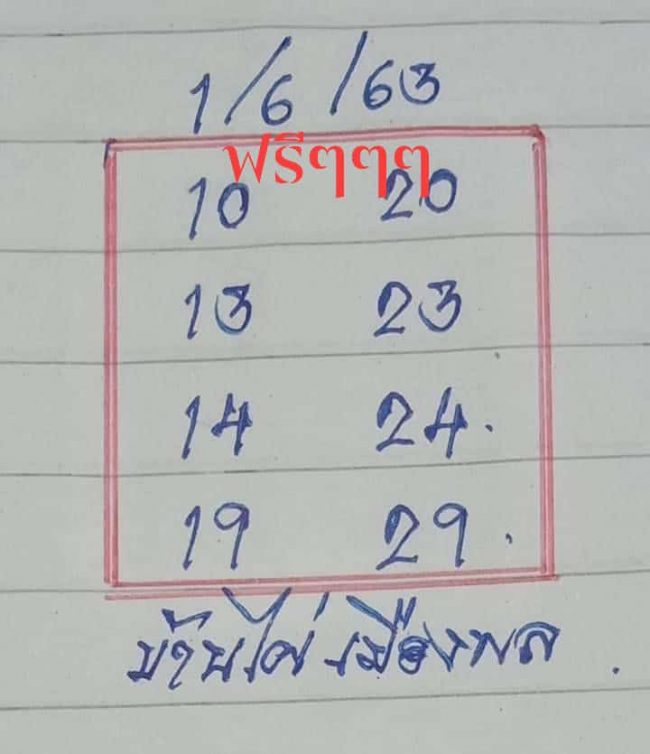 1/6/63
ฟรีๆๆๆ
10 20
13 23
14 24.
19 29.
บ้านไผ่ เมืองพล.